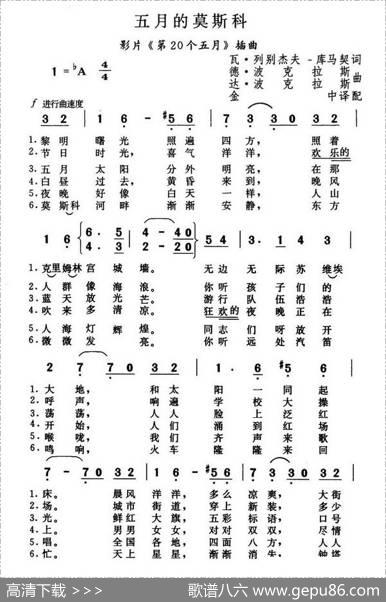 五月的莫斯科
影片《第20个五月》插曲
瓦·列别杰夫-库马契词
1=♭A 4/4
德·波克拉斯
达·波克拉斯 曲
金中译配
f 进行曲速度
3 2 | 1 6 · - #5 6 | 7 3 · 3 3 2
1.黎明曙光照遍四方，照着
2.节日时光，喜气洋洋，欢乐的
3.五月太阳分外明亮，在那
4.白昼过去，黄昏来到，晚风
5.夜晚好像白天一样，人山
6.莫斯科河畔渐渐安静，东方
1 6 6. 5 4-3 0 54 | 3. 1 4 3
4. 4 2-2 0
1.克里姆林宫城墙。无边无际苏维埃
2.人群像海浪。你听孩子们的
3.蓝天放光芒。游行队伍浩浩
4.吹来多清凉。狂欢的夜晚正在
5.人海灯辉煌。同志们呀放开
6.微微发亮。你听远处汽笛
2 7 | 7 0 3 2 | 1 6 · #5 6
1.大地，和太阳一同起
2.呼声，响遍学校大操
3.荡荡，人人脸上泛红
4.开始，人们涌到红场
5.喉咙，我们齐声来歌
6.鸣响，火车隆隆来回
7 - 7 0 3 2 | 1 6 · - #5 6 | 7 3 · 3 3 2
1.床。晨风洋洋，多么凉爽，大街
2.场。城市街道，穿上新装，多少
3.光。鲜红大旗，五彩标语，口号
4.上。男男女女，对对双双，尽情
5.唱。全国各地，四面八方，人人
6.忙。天上星星，渐渐消失，钟塔
高清下载 >>>> 歌谱八六 www.gepu86.com